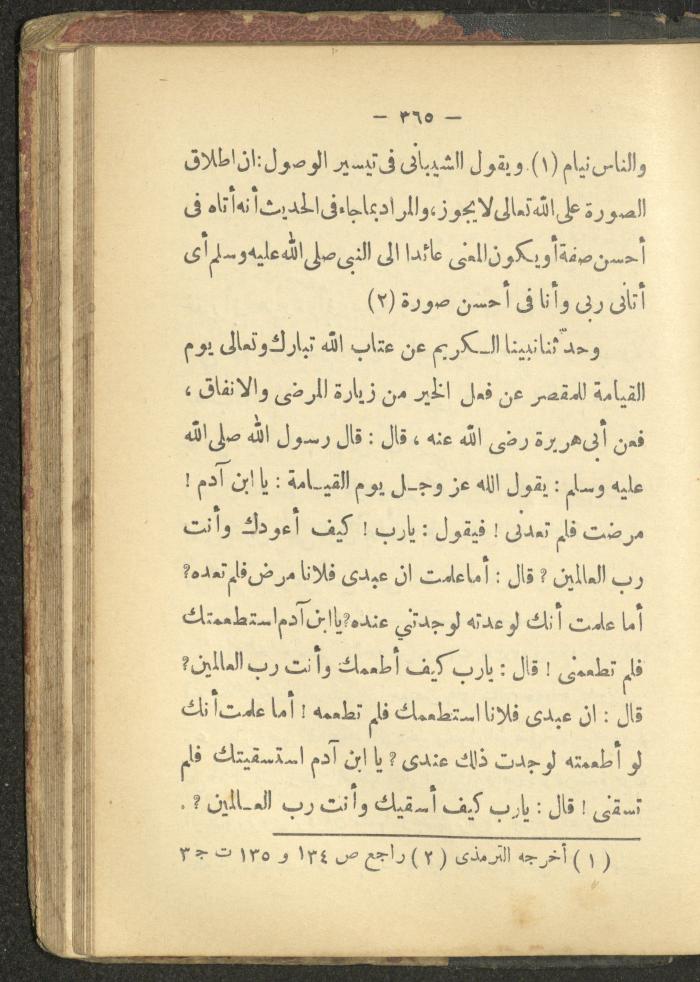 — ٣٦٥ —
والناس نيام (١). ويقول الشيبانى فى تيسير الوصول: ان اطلاق
الصورة على الله تعالى لا يجوز، والمراد بما جاء فى الحديث أنه أتاه فى
أحسن صفة أو يكون المعنى عائدا الى النبى صلى الله عليه وسلم أى
أتانى ربى وأنا فى أحسن صورة (٢)
وحدّثنا نبينا الكريم عن عتاب الله تبارك وتعالى يوم
القيامة للمقصر عن فعل الخير من زيارة المرضى والانفاق ،
فعن أبى هريرة رضى الله عنه ، قال : قال رسول الله صلى الله
عليه وسلم : يقول الله عز وجل يوم القيامة : يا ابن آدم !
مرضت فلم تعدنى ! فيقول : يارب ! كيف أعودك وأنت
رب العالمين ؟ قال : أما علمت ان عبدى فلانا مرض فلم تعده؟
أما علمت أنك لو عدته لوجدتني عنده؟ يا ابن آدم استطعمتك
فلم تطعمنى ! قال : يارب كيف أطعمك وأنت رب العالمين؟
قال : ان عبدى فلانا استطعمك فلم تطعمه ! أما علمت أنك
لو أطعمته لوجدت ذلك عندى ؟ يا ابن آدم استسقيتك فلم
تسقنى ! قال : يارب كيف أسقيك وأنت رب العالمين ؟ .
(١) أخرجه الترمذى (٢) راجع ص ١٣٤ و ١٣٥ ت ج ٣